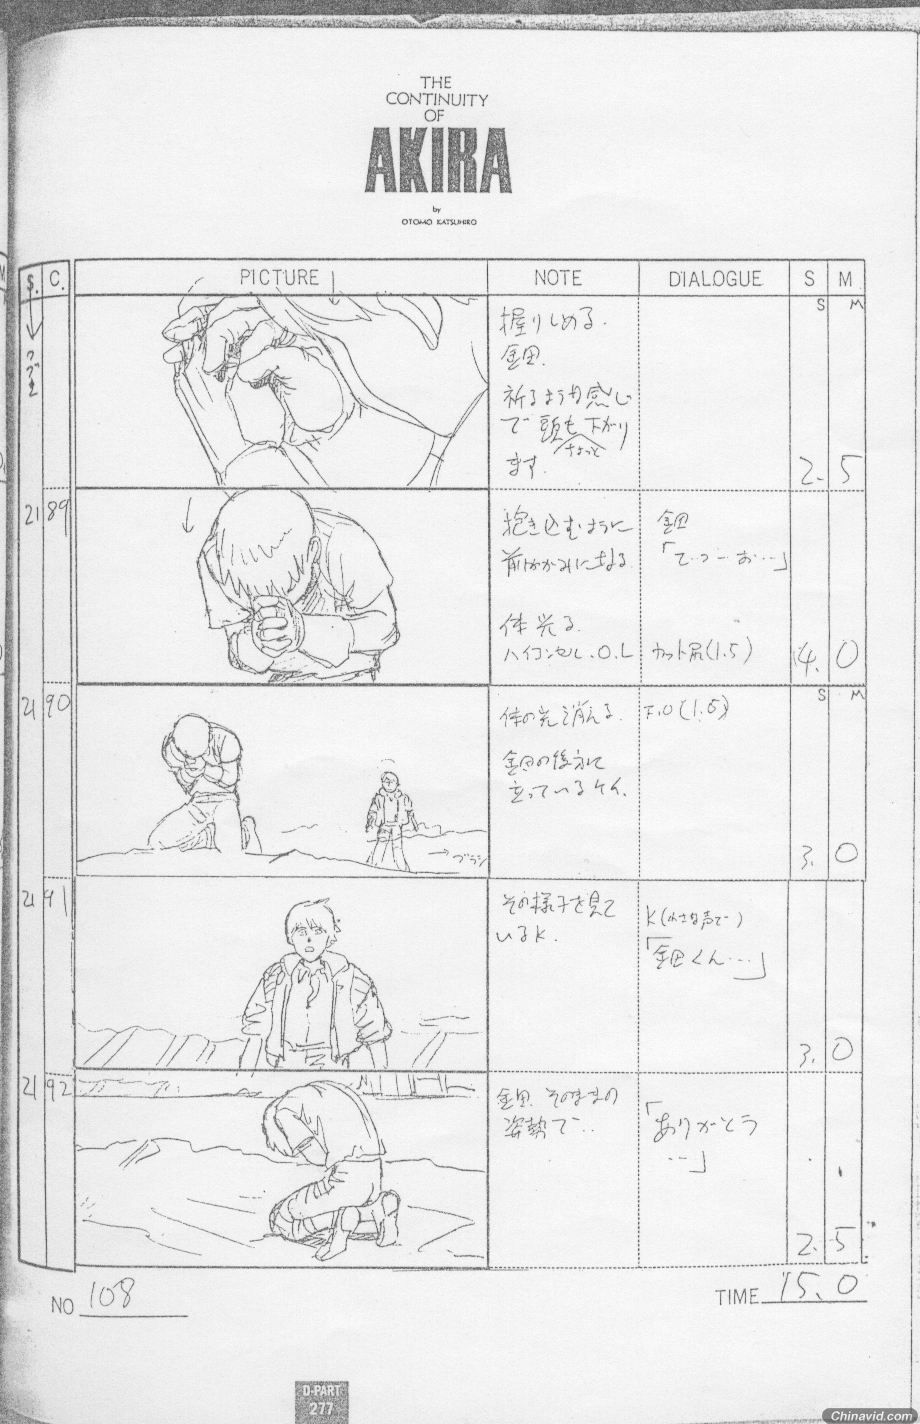 THE
CONTINUITY
OF
AKIRA
by
OTOMO KATSUHIRO
S. C. PICTURE NOTE DIALOGUE S M
S M
つづき
握りしめる.
金田.
祈るような感じ
で頭も下がり
ちょっと
ます.
2. 5
21 89
抱き込むように
前かがみになる
体光る.
ハイコンセル.O.L
金田
「てつーお…」
カット尻(1.5)
4. 0
21 90
S M
体の光消える.
金田の後方に
立っているケイ.
F.O(1.5)
3. 0
21 91
その様子を見て
いるK.
K(小さな声で)
「金田くん…」
3. 0
21 92
金田.そのままの
姿勢で…
「ありがとう
…」
2. 5
NO 108
TIME 15.0
D-PART
277
Chinavid.com